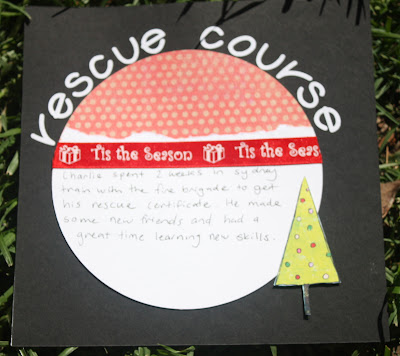 rescue course
Tis the Season Tis the Seas
Charlie spent 2 weeks in sydney
train with the fire brigade to get
his rescue certificate. He made
some new friends and had a
great time learning new skills.